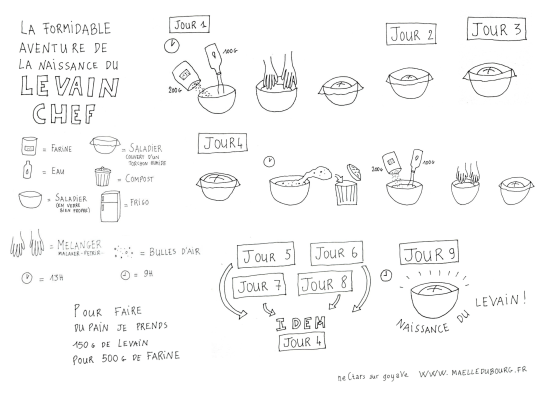 LA FORMIDABLE
AVENTURE DE
LA NAISSANCE DU
LEVAIN
CHEF
JOUR 1
200G
100G
JOUR 2
JOUR 3
= FARINE
= SALADIER
COUVERT D'UN
TORCHON HUMIDE
= EAU
= COMPOST
= SALADIER
(EN VERRE
BIEN PROPRE)
= FRIGO
= MELANGER
MALAXER - PETRIR
= BULLES D'AIR
= 13H
= 9H
JOUR 4
200G
100G
JOUR 5
JOUR 6
JOUR 7
JOUR 8
IDEM
JOUR 4
JOUR 9
NAISSANCE DU LEVAIN !
POUR FAIRE
DU PAIN JE PRENDS
150 G DE LEVAIN
POUR 500 G DE FARINE
neCtars sur goyaVe WWW.MAELLEDUBOURG.FR